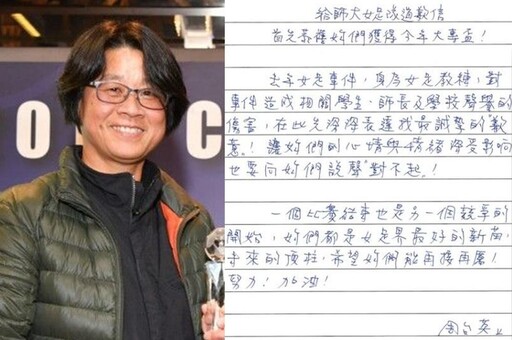 給師大女足改過歉信
首先恭禧妳們獲得今年大專盃！
去年女足事件，身為女足教練，對
事件造成相關學生、師長及學校聲譽的
傷害，在此先深深表達我最誠摯的歉
意！讓妳們的心情與情緒深受影響
也要向妳們說聲"對不起"！
一個比賽結束也是另一個競爭的
開始，妳們都是女足界最好的新苗，
未來的頂柱，希望妳們能再接再厲！
努力！加油！
周台英